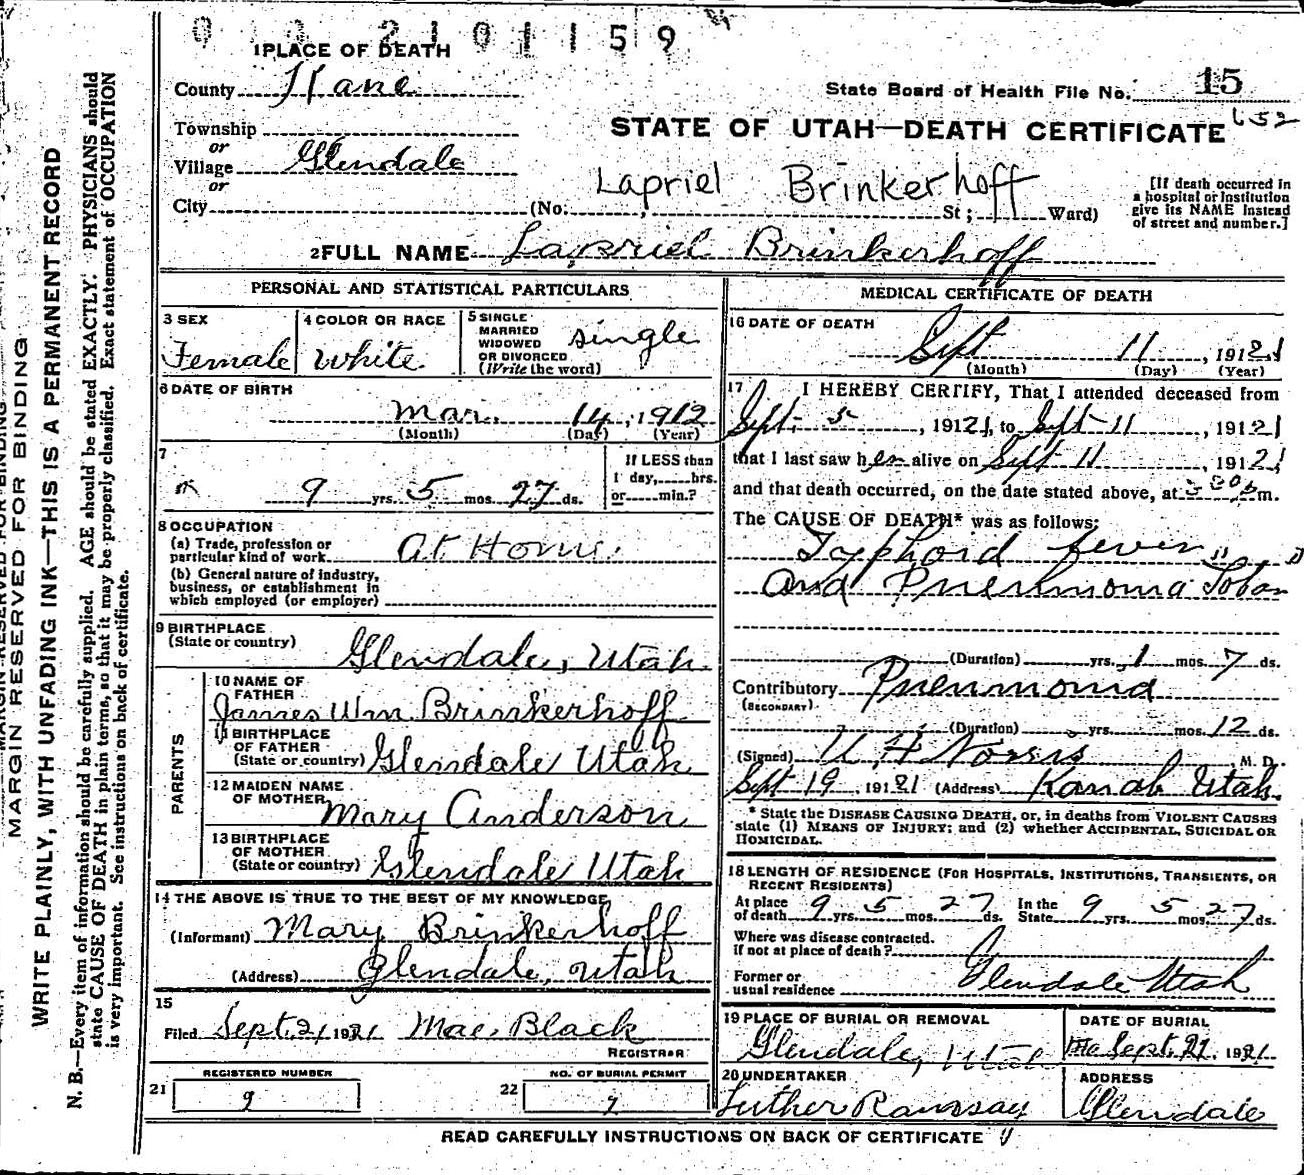 0 3 2101159
1 PLACE OF DEATH
County Kane
State Board of Health File No. 15
652
STATE OF UTAH—DEATH CERTIFICATE
Township
or
Village Glendale
or
City (No. , St; Ward)
Lapriel Brinkerhoff
[If death occurred in
a hospital or institution
give its NAME instead
of street and number.]
2 FULL NAME Lapriel Brinkerhoff
PERSONAL AND STATISTICAL PARTICULARS
3 SEX
Female
4 COLOR OR RACE
White
5 SINGLE
MARRIED
WIDOWED
OR DIVORCED
(Write the word)
single
6 DATE OF BIRTH
Mar. 14, 1912
(Month) (Day) (Year)
7
9 yrs. 5 mos. 27 ds.
If LESS than
1 day, hrs.
or min.?
8 OCCUPATION
(a) Trade, profession or
particular kind of work At Home.
(b) General nature of industry,
business, or establishment in
which employed (or employer)
9 BIRTHPLACE
(State or country) Glendale, Utah
PARENTS
10 NAME OF
FATHER
James Wm Brinkerhoff
11 BIRTHPLACE
OF FATHER
(State or country) Glendale Utah
12 MAIDEN NAME
OF MOTHER
Mary Anderson
13 BIRTHPLACE
OF MOTHER
(State or country) Glendale Utah
14 THE ABOVE IS TRUE TO THE BEST OF MY KNOWLEDGE
(Informant) Mary Brinkerhoff
(Address) Glendale, Utah
15
Filed Sept. 21 1921 Mae. Black
REGISTRAR
21 REGISTERED NUMBER
9
22 NO. OF BURIAL PERMIT
7
MEDICAL CERTIFICATE OF DEATH
16 DATE OF DEATH
Sept 11, 1921
(Month) (Day) (Year)
17 I HEREBY CERTIFY, That I attended deceased from
Sept. 5, 19121, to Sept 11, 19121
that I last saw her alive on Sept 11, 19121
and that death occurred, on the date stated above, at m.
The CAUSE OF DEATH* was as follows:
Typhoid fever
and Pneumonia Lobar
(Duration) yrs. 1 mos. 7 ds.
Contributory Pneumonia
(SECONDARY)
(Duration) yrs. mos. 12 ds.
(Signed) Norris, M. D.
Sept 19, 19121 (Address) Kanab Utah.
* State the DISEASE CAUSING DEATH, or, in deaths from VIOLENT CAUSES
state (1) MEANS OF INJURY; and (2) whether ACCIDENTAL, SUICIDAL OR
HOMICIDAL.
18 LENGTH OF RESIDENCE (FOR HOSPITALS, INSTITUTIONS, TRANSIENTS, OR
RECENT RESIDENTS)
At place
of death 9 yrs 5 mos. 27 ds. In the
State 9 yrs 5 mos 27 ds.
Where was disease contracted.
if not at place of death?
Former or
usual residence Glendale Utah
19 PLACE OF BURIAL OR REMOVAL
Glendale, Utah
DATE OF BURIAL
Sept. 1921
20 UNDERTAKER
Luther Ramsay
ADDRESS
Glendale
READ CAREFULLY INSTRUCTIONS ON BACK OF CERTIFICATE
MARGIN RESERVED FOR BINDING
MARGIN RESERVED FOR BINDING
WRITE PLAINLY, WITH UNFADING INK—THIS IS A PERMANENT RECORD
N. B.—Every item of information should be carefully supplied. AGE should be stated EXACTLY. PHYSICIANS should
state CAUSE OF DEATH in plain terms, so that it may be properly classified. Exact statement of OCCUPATION
is very important. See instructions on back of certificate.